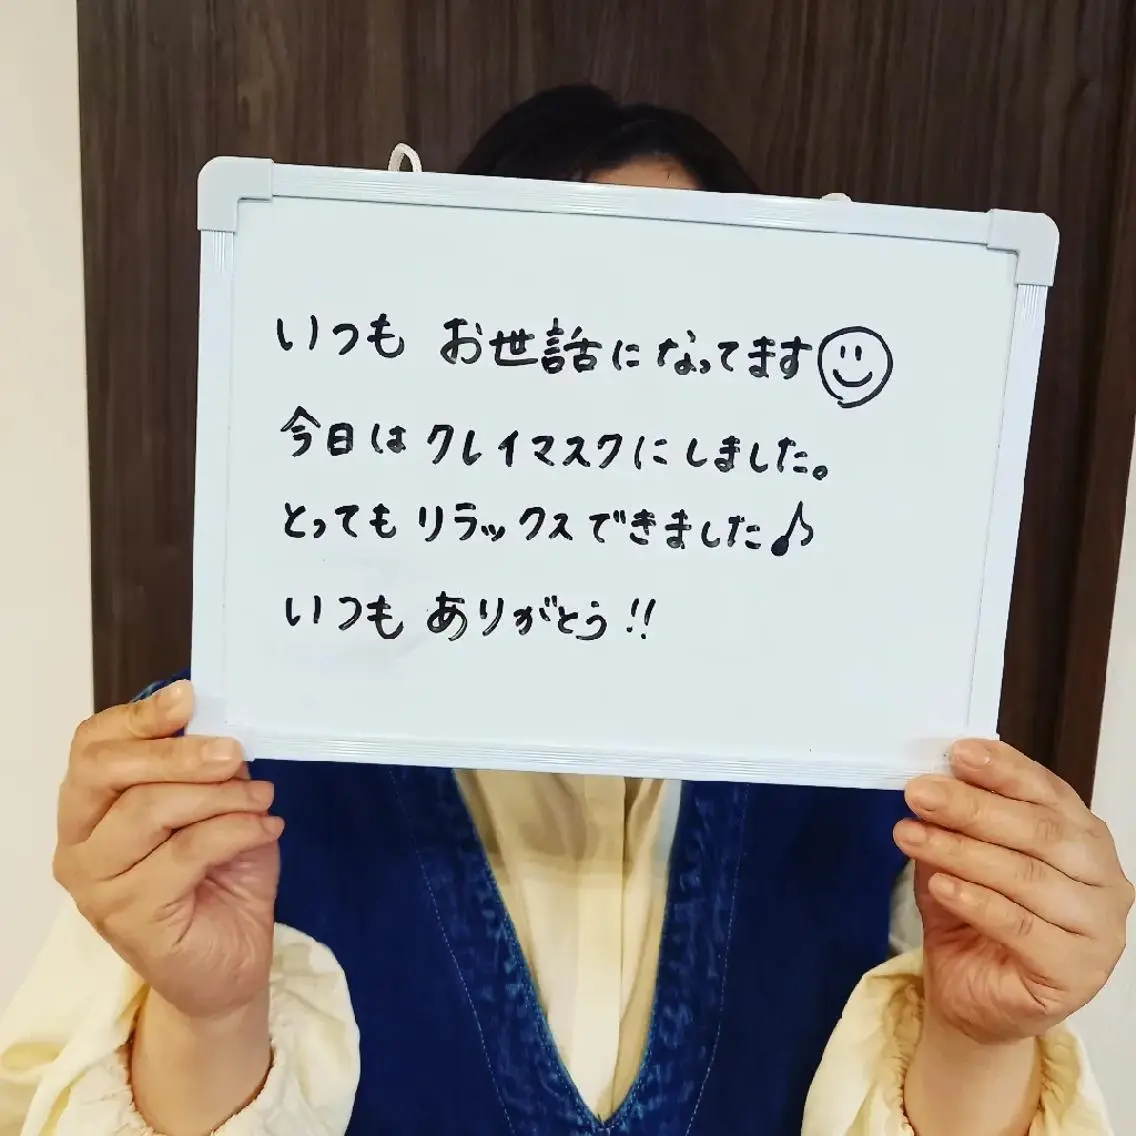 いつも お世話になってます☺
今日は クレイマスクにしました。
とっても リラックスできました♪
いつも ありがとう!!